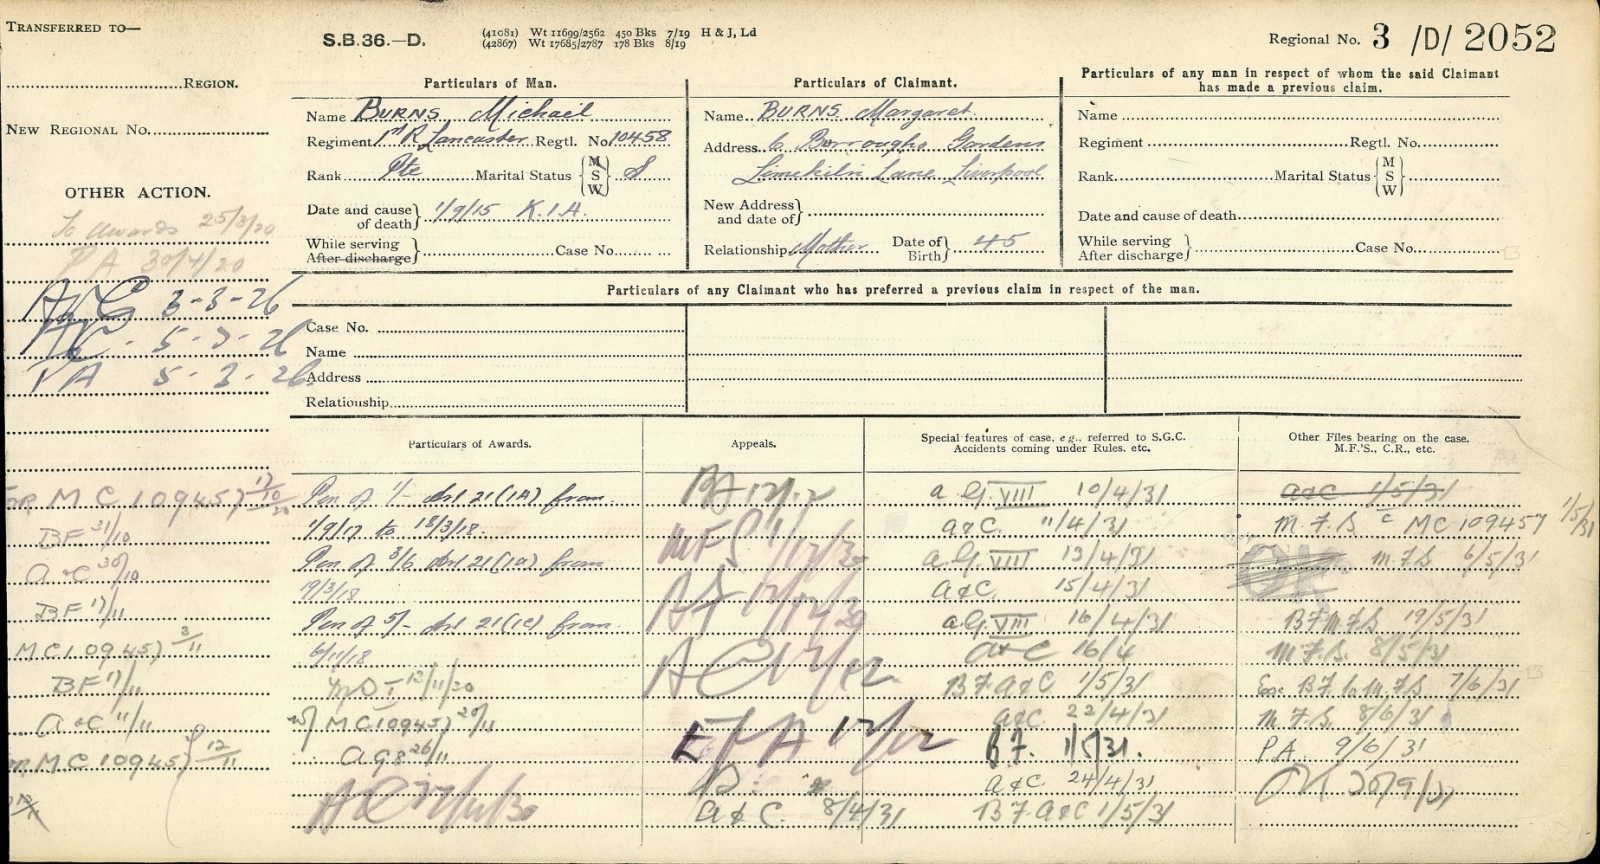 TRANSFERRED TO—
REGION.
NEW REGIONAL No.
OTHER ACTION.
To Awards 25/3/20
P A 30/4/20
3-3-26
5-3-26
P A 5-3-26
M C 109457 17/10/30
BF 31/10
A & C 30/10
BF 17/11
MC 109457 3/11
BF 17/11
A & C 11/11
M C 109457 12/11
S.B.36.—D.
(41081) Wt 11699/2562 450 Bks 7/19 H & J, Ld
(42867) Wt 17685/2787 178 Bks 8/19
Regional No. 3 /D/ 2052
Particulars of Man.
Name BURNS Michael
Regiment 1st R Lancaster Regtl. No. 10458
Rank Pte Marital Status { M S W } S
Date and cause of death } 1/9/15 K.I.A.
While serving
After discharge } Case No.
Particulars of Claimant.
Name BURNS Margaret
Address 6 Burroughs Gardens
Limekiln Lane Liverpool
New Address and date of }
Relationship Mother Date of Birth } 45
Particulars of any man in respect of whom the said Claimant
has made a previous claim.
Name
Regiment Regtl. No.
Rank Marital Status { M S W }
Date and cause of death
While serving
After discharge } Case No.
Particulars of any Claimant who has preferred a previous claim in respect of the man.
Case No.
Name
Address
Relationship
Particulars of Awards.
Pen of 1/- Art 21(1A) from
1/9/17 to 18/3/18.
Pen of 3/6 Art 21(1A) from
19/3/18
Pen of 5/- Art 21(1C) from
6/11/18
12/11/30
MC 109457 20/11
26/11
Appeals.
MFS
A & C. 8/4/31
Special features of case, e.g., referred to S.G.C.
Accidents coming under Rules. etc.
A.G. VIII 10/4/31
A & C. 11/4/31
A.G. VIII 13/4/31
A & C. 15/4/31
A.G. VIII 16/4/31
A & C 16/4
B F A & C 1/5/31
A & C 22/4/31
B F. 1/5/31.
A & C 24/4/31
B F A & C 1/5/31
Other Files bearing on the case.
M.F.'S., C.R., etc.
A & C 1/5/31
M.F.S c MC 109457 1/5/31
M.F.S 6/5/31
B F M.F.S 19/5/31
M.F.S. 8/5/31
B F to M.F.S 7/6/31
M.F.S. 8/6/31
P.A. 9/6/31